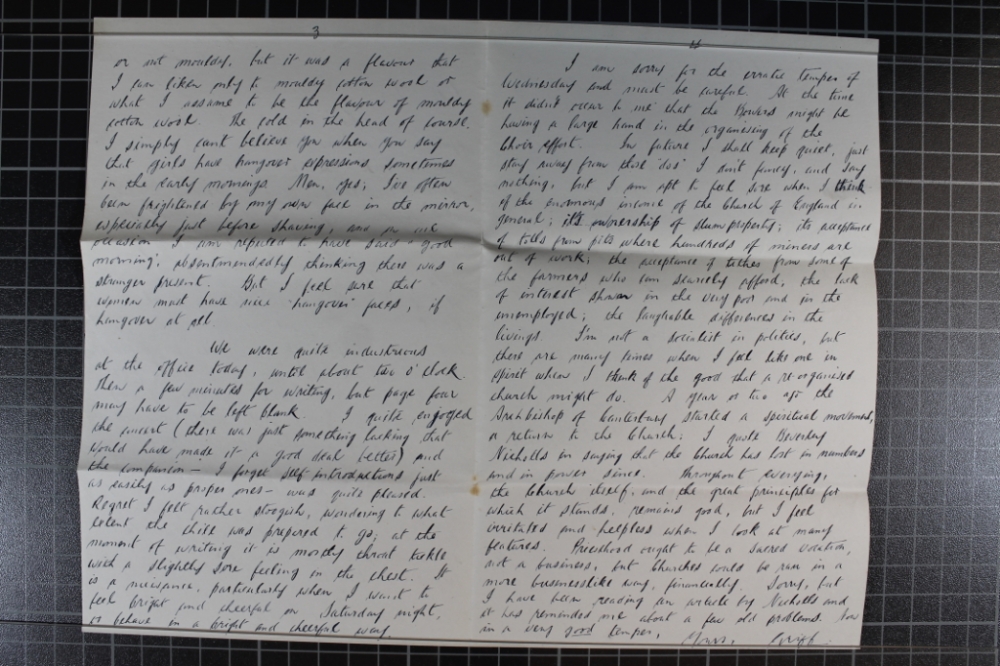 3
or not mouldy, but it was a flavour that
I can liken only to mouldy cotton wool or
what I assume to be the flavour of mouldy
cotton wool. The cold in the head of course.
I simply can't believe you when you say
that girls have hangover expressions sometimes
in the early mornings. Men, yes; I've often
been frightened by my own face in the mirror,
especially just before shaving, and on one
occasion I am reputed to have said "good
morning", absentmindedly thinking there was a
stranger present. But I feel sure that
women must have nice "hangover" faces, if
hangover at all.
We were quite industrious
at the office today, until about two o'clock.
Then a few minutes for writing, but page four
may have to be left blank. I quite enjoyed
the concert (there was just something lacking that
would have made it a good deal better) and
the companion – I forget self introductions just
as easily as proper ones – was quite pleased.
Regret I felt rather stoogish, wondering to what
extent the chill was prepared to go; at the
moment of writing it is mostly throat tackle
with a slightly sore feeling in the chest. It
is a nuisance, particularly when I want to
feel bright and cheerful on Saturday night,
or behave in a bright and cheerful way.
4
I am sorry for the erratic temper of
Wednesday and must be careful. At the time
it didn't occur to me that the Bowers might be
having a large hand in the organising of the
Choir effort. In future I shall keep quiet, just
stay away from those 'dos' I don't fancy, and say
nothing, but I am apt to feel sore when I think
of the enormous income of the Church of England in
general; its ownership of slum property; its acceptance
of tolls from pits where hundreds of miners are
out of work; the acceptance of tithes from some of
the farmers who can scarcely afford, the lack
of interest shown in the very poor and in the
unemployed; the laughable differences in the
livings. I'm not a socialist in politics, but
there are many times when I feel like one in
spirit when I think of the good that a re-organised
church might do. A year or two ago the
Archbishop of Canterbury started a spiritual movement,
a return to the Church; I quote Beverley
Nicholls in saying that the Church has lost in numbers
and in power since. Throughout everything,
the Church itself, and the great principles for
which it stands, remains good, but I feel
irritated and helpless when I look at many
features. Priesthood ought to be a sacred vocation,
not a business, but Churches could be run in a
more businesslike way, financially. Sorry, but
I have been reading an article by Nicholls and
it has reminded me about a few old problems. Now
in a very good temper,
Yours,